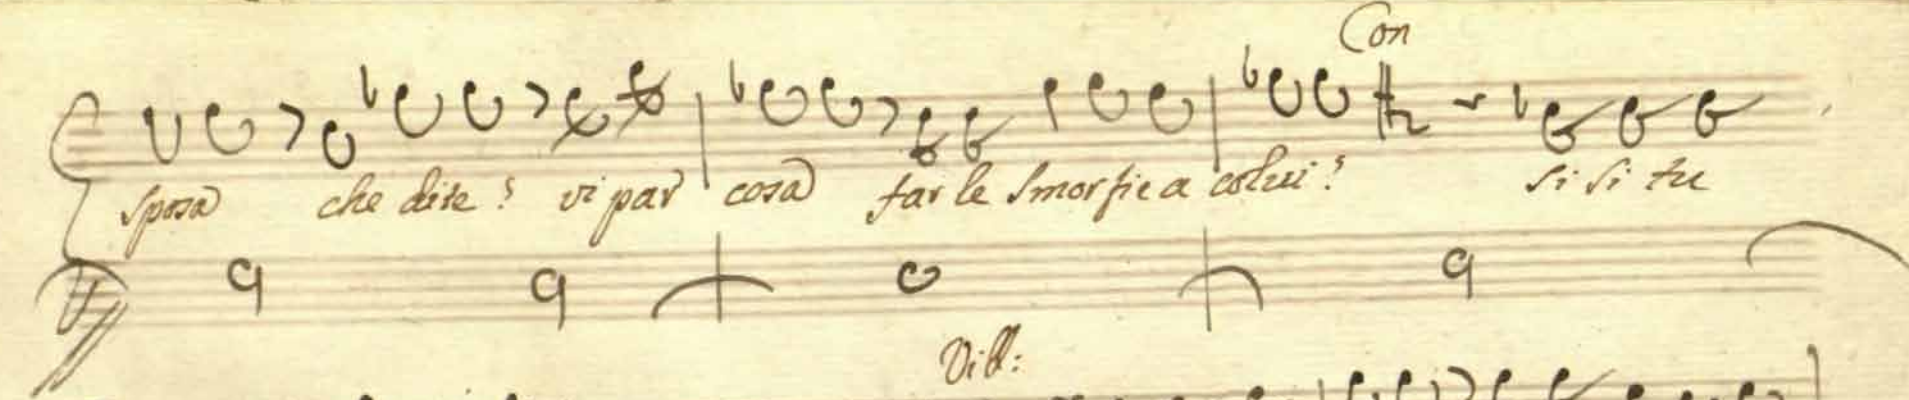 Con
sposa che dite? vi par cosa far le smorfie a colui? si si tu
Vill: